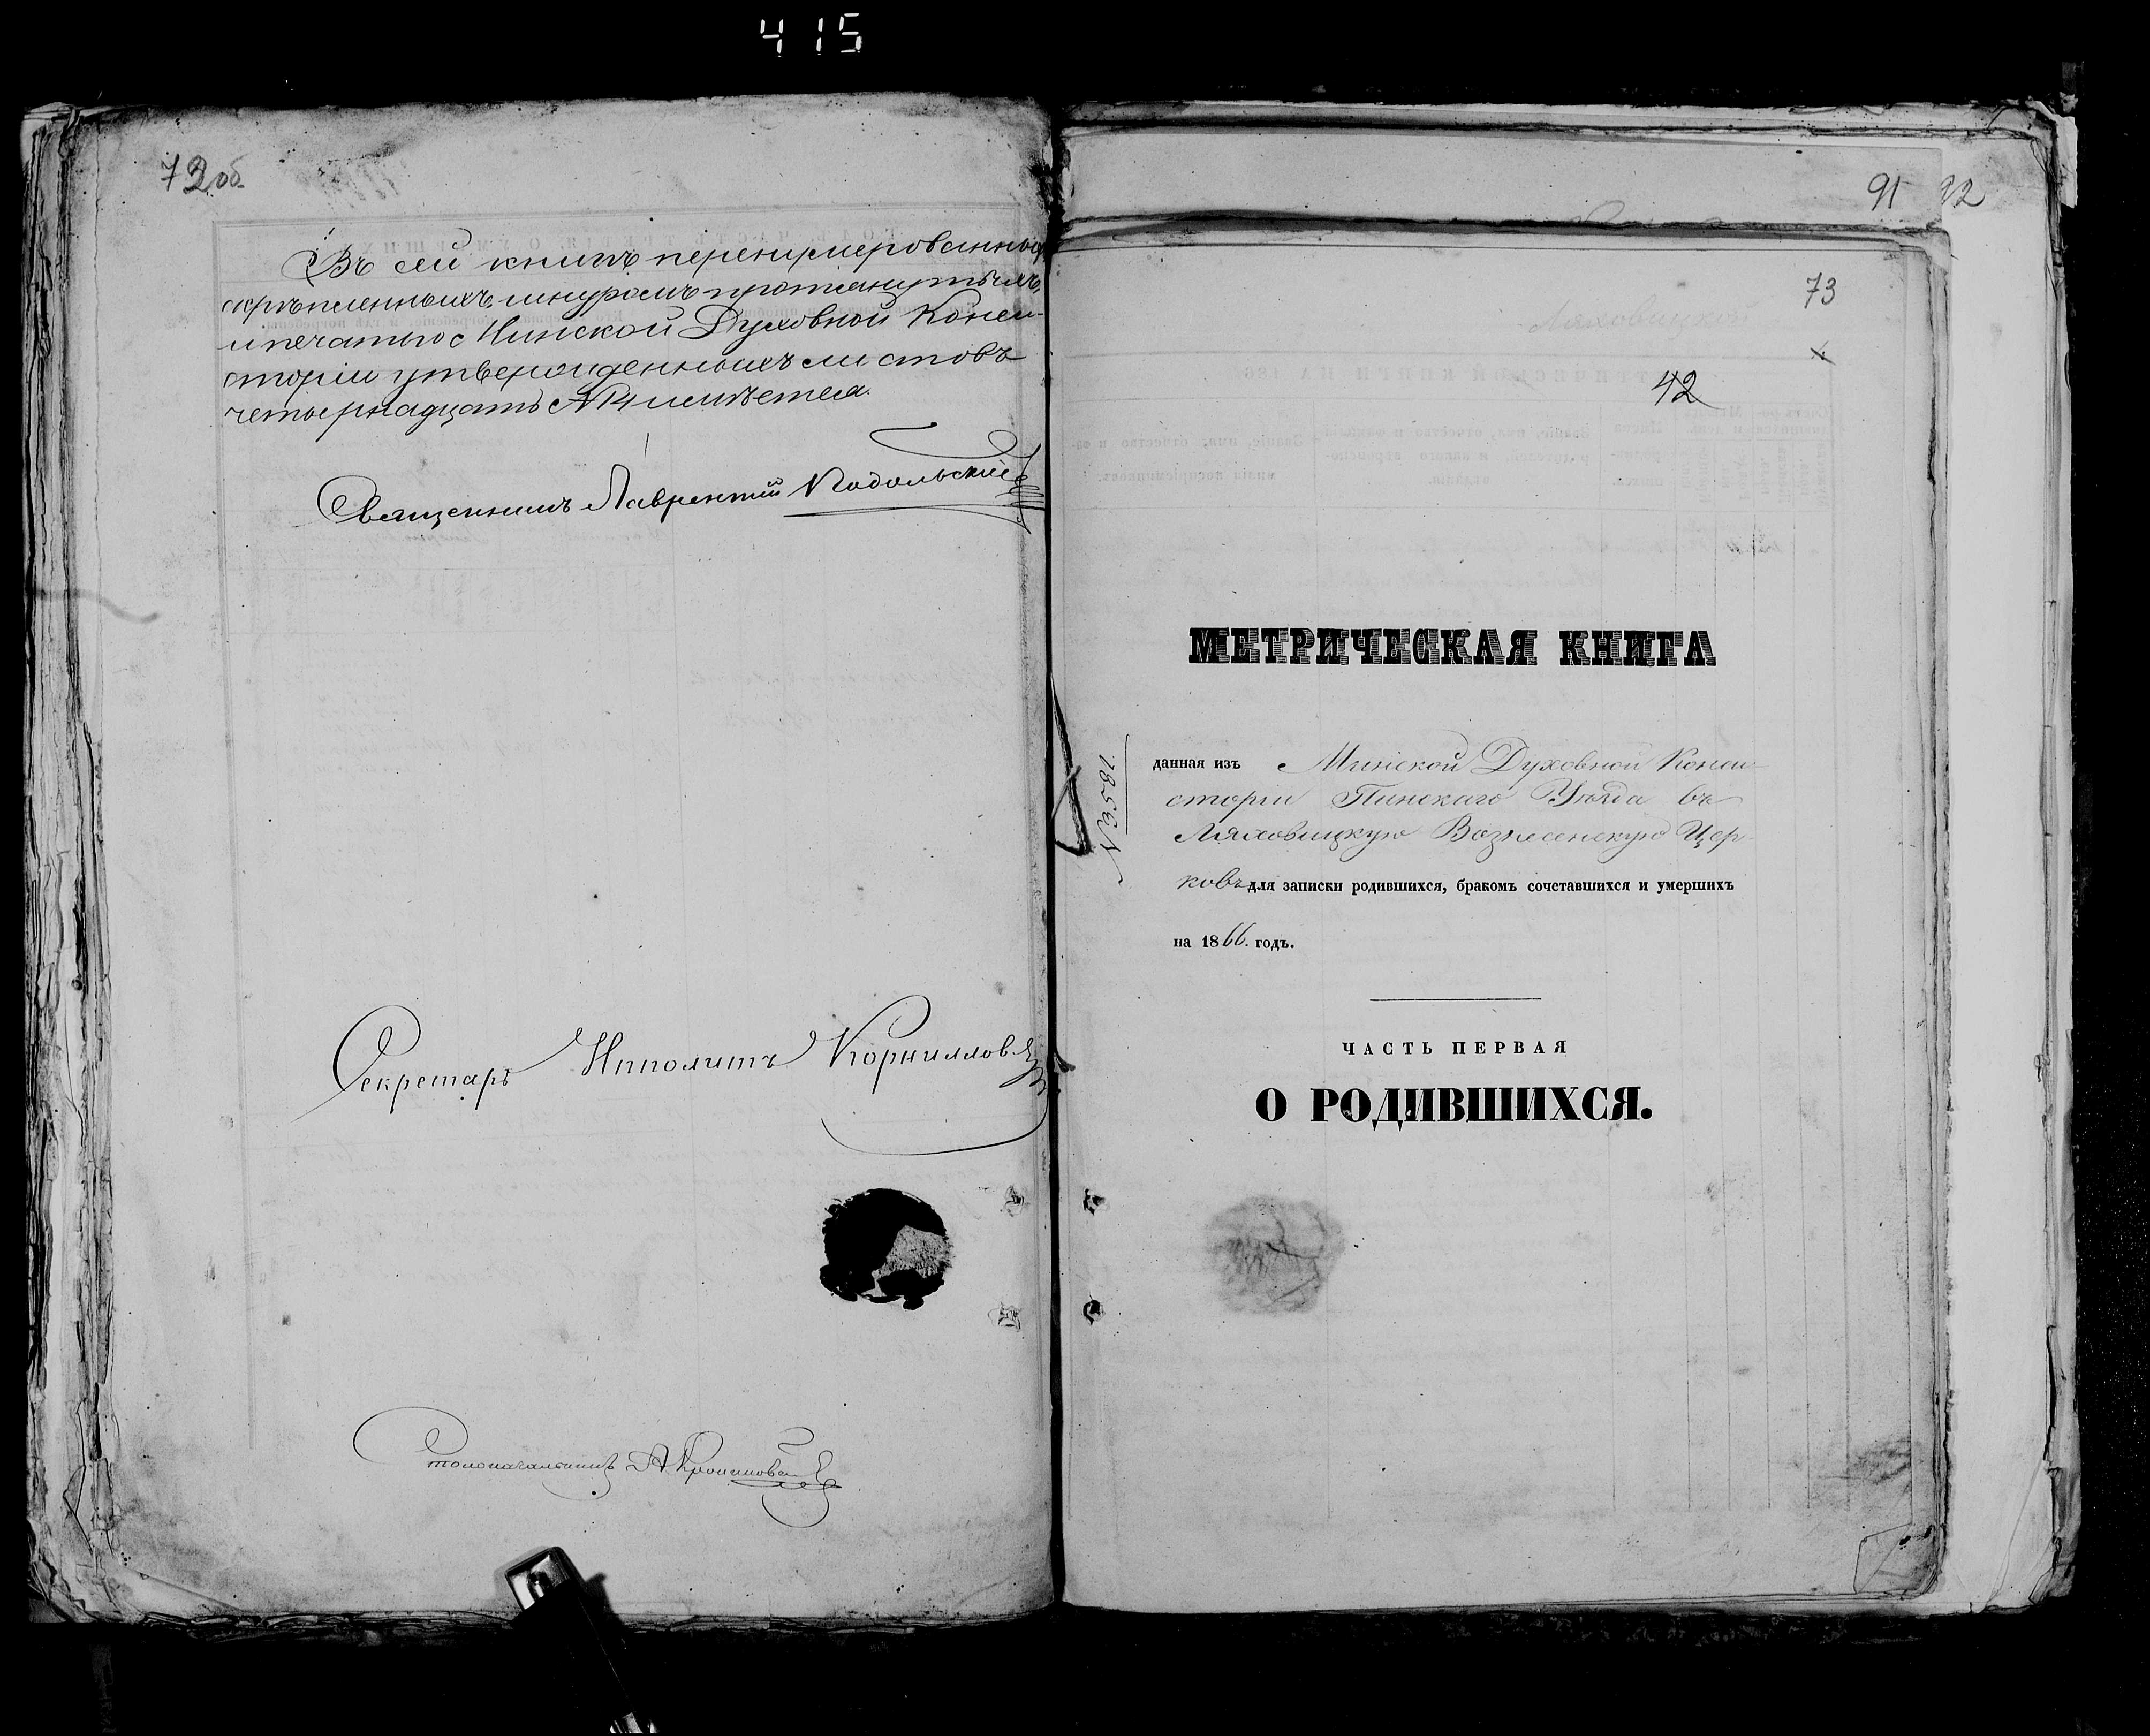 415
72 об.
Въ сей книгѣ перенумерованныхъ
скрѣпленныхъ, шнуромъ протянутыхъ,
и печатью Минской Духовной Конси-
сторіи утвержденныхъ листовъ
четырнадцать №14 имѣется.
Священникъ Лаврентій Подольскій
Секретарь Ипполитъ Корниллов
Столоначальникъ А
91 92
73
Ляховицкой
42
МЕТРИЧЕСКАЯ КНИГА
№3581.
данная изъ Минской Духовной Конси-
сторіи Пинскаго Уѣзда въ
Ляховицкую Вознесенскую Цер-
ковь для записки родившихся, бракомъ сочетавшихся и умершихъ
на 1866. годъ.
ЧАСТЬ ПЕРВАЯ
О РОДИВШИХСЯ.